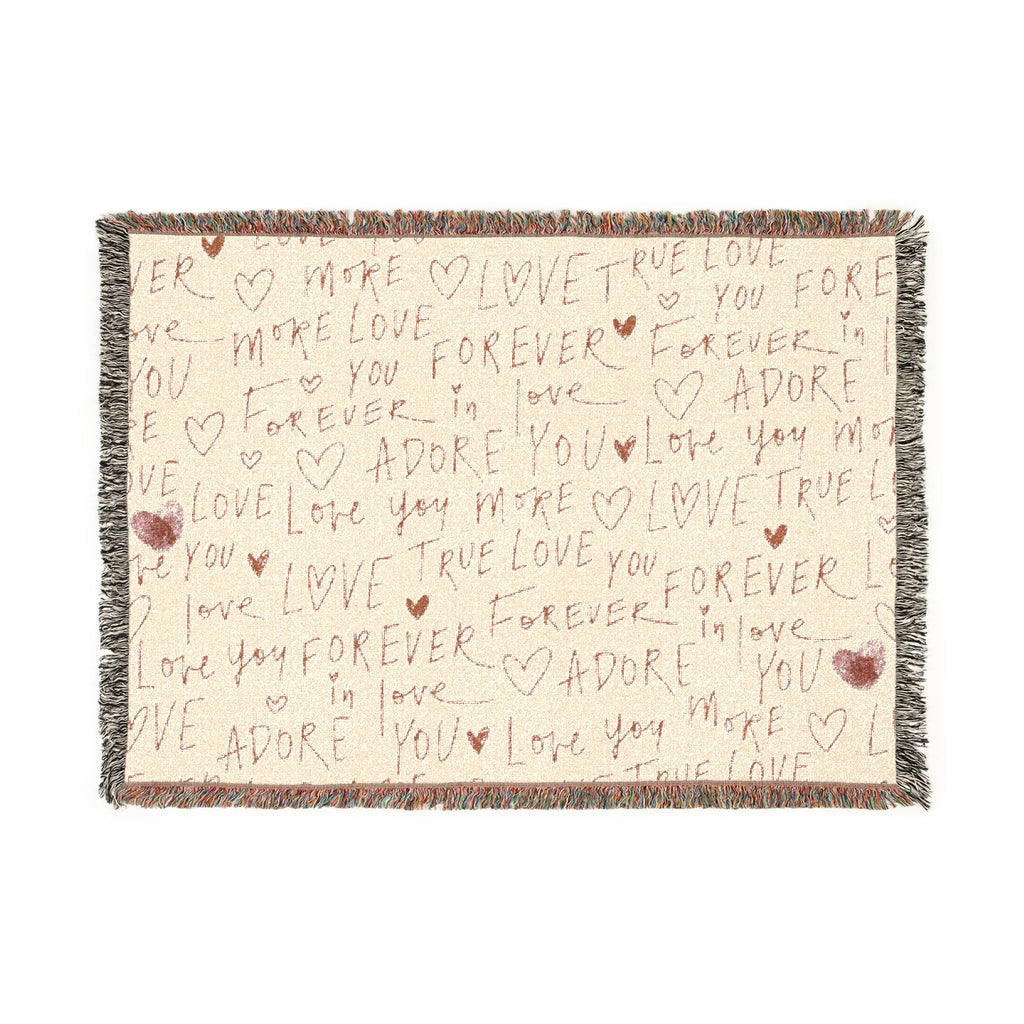 LOVE YOU
VER MORE LOVE TRUE LOVE
YOU FORE
ove MORE LOVE FOREVER FOREVER in l
YOU YOU
FOREVER in love ADORE
E ADORE YOU Love you mor
OVE LOVE Love you more LOVE TRUE L
ve YOU LOVE TRUE LOVE YOU FOREVER Lo
love FOREVER in love
Love you FOREVER ADORE YOU
in love
OVE ADORE YOU Love you more L
TRUE LOVE